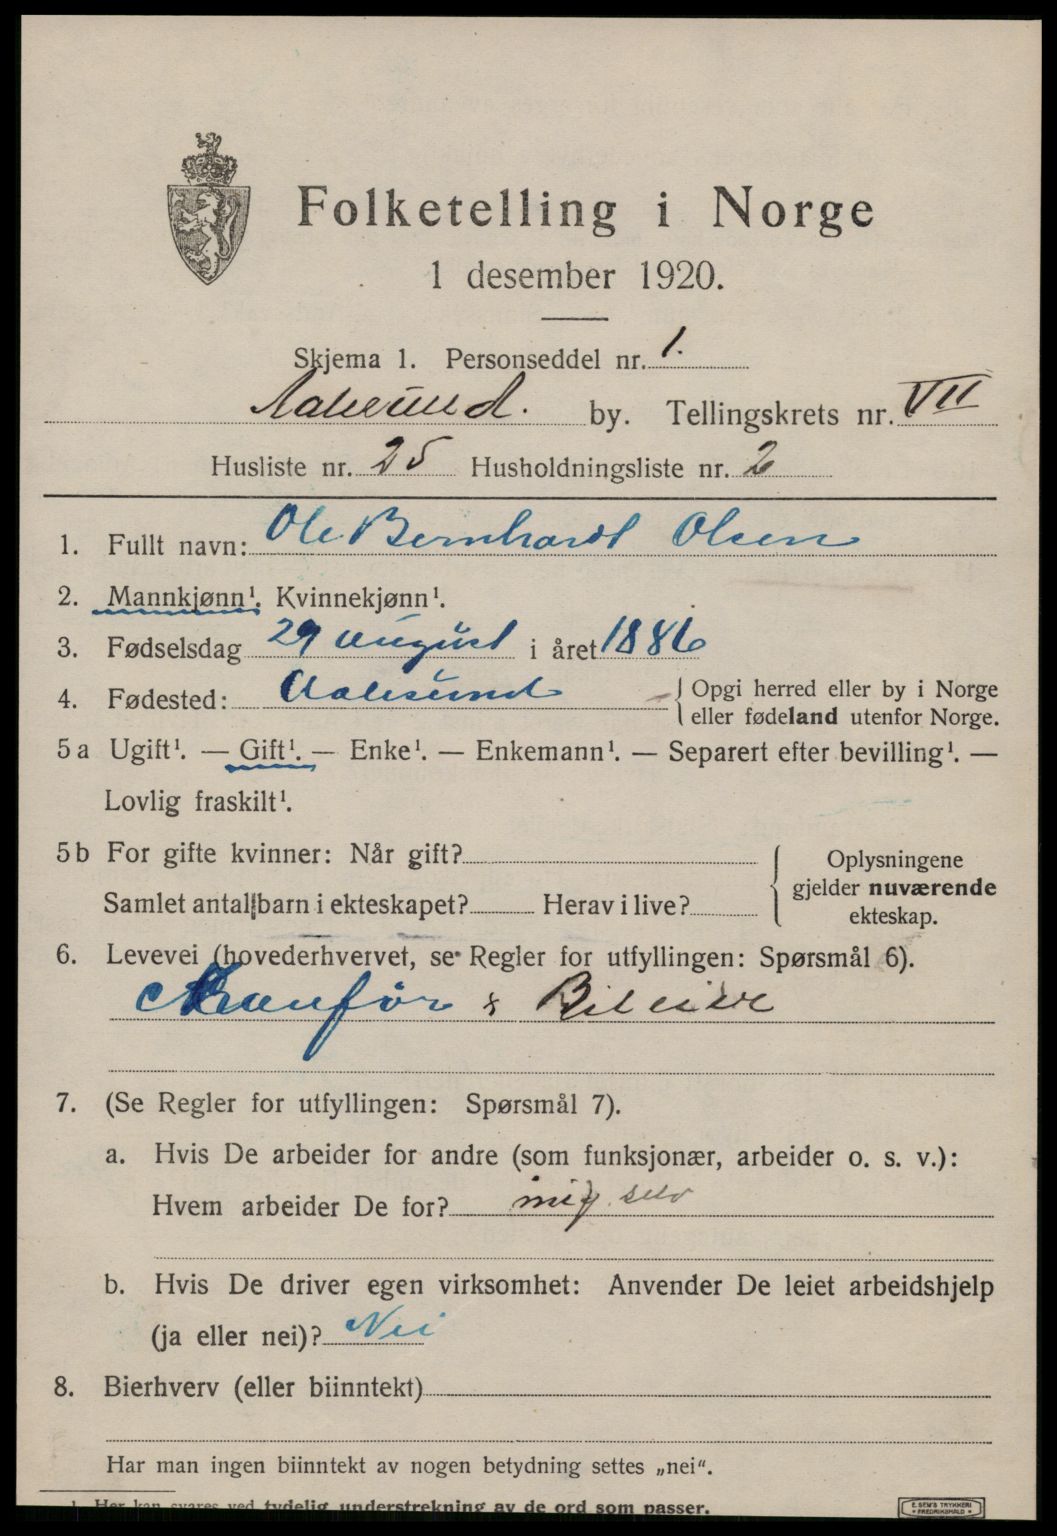 Folketelling i Norge
1 desember 1920.
Skjema 1. Personseddel nr. 1.
Aalesund. by. Tellingskrets nr. VII
Husliste nr. 25 Husholdningsliste nr. 2
1. Fullt navn: Ole Bernhardt Olsen
2. Mannkjønn¹. Kvinnekjønn¹.
3. Fødselsdag 29 august i året 1886
4. Fødested: Aalesund
Opgi herred eller by i Norge
eller fødeland utenfor Norge.
5a Ugift¹. — Gift¹. — Enke¹. — Enkemann¹. — Separert efter bevilling¹. —
Lovlig fraskilt¹.
5b For gifte kvinner: Når gift?
Samlet antal barn i ekteskapet? Herav i live?
Oplysningene
gjelder nuværende
ekteskap.
6. Levevei (hovederhvervet, se Regler for utfyllingen: Spørsmål 6).
& Bileier
7. (Se Regler for utfyllingen: Spørsmål 7).
a. Hvis De arbeider for andre (som funksjonær, arbeider o. s. v.):
Hvem arbeider De for? mig selv
b. Hvis De driver egen virksomhet: Anvender De leiet arbeidshjelp
(ja eller nei)? Nei
8. Bierhverv (eller biinntekt)
Har man ingen biinntekt av nogen betydning settes „nei".
1. Her kan svares ved tydelig understrekning av de ord som passer.
E. SEM'S TRYKKERI
FREDRIKSHALD